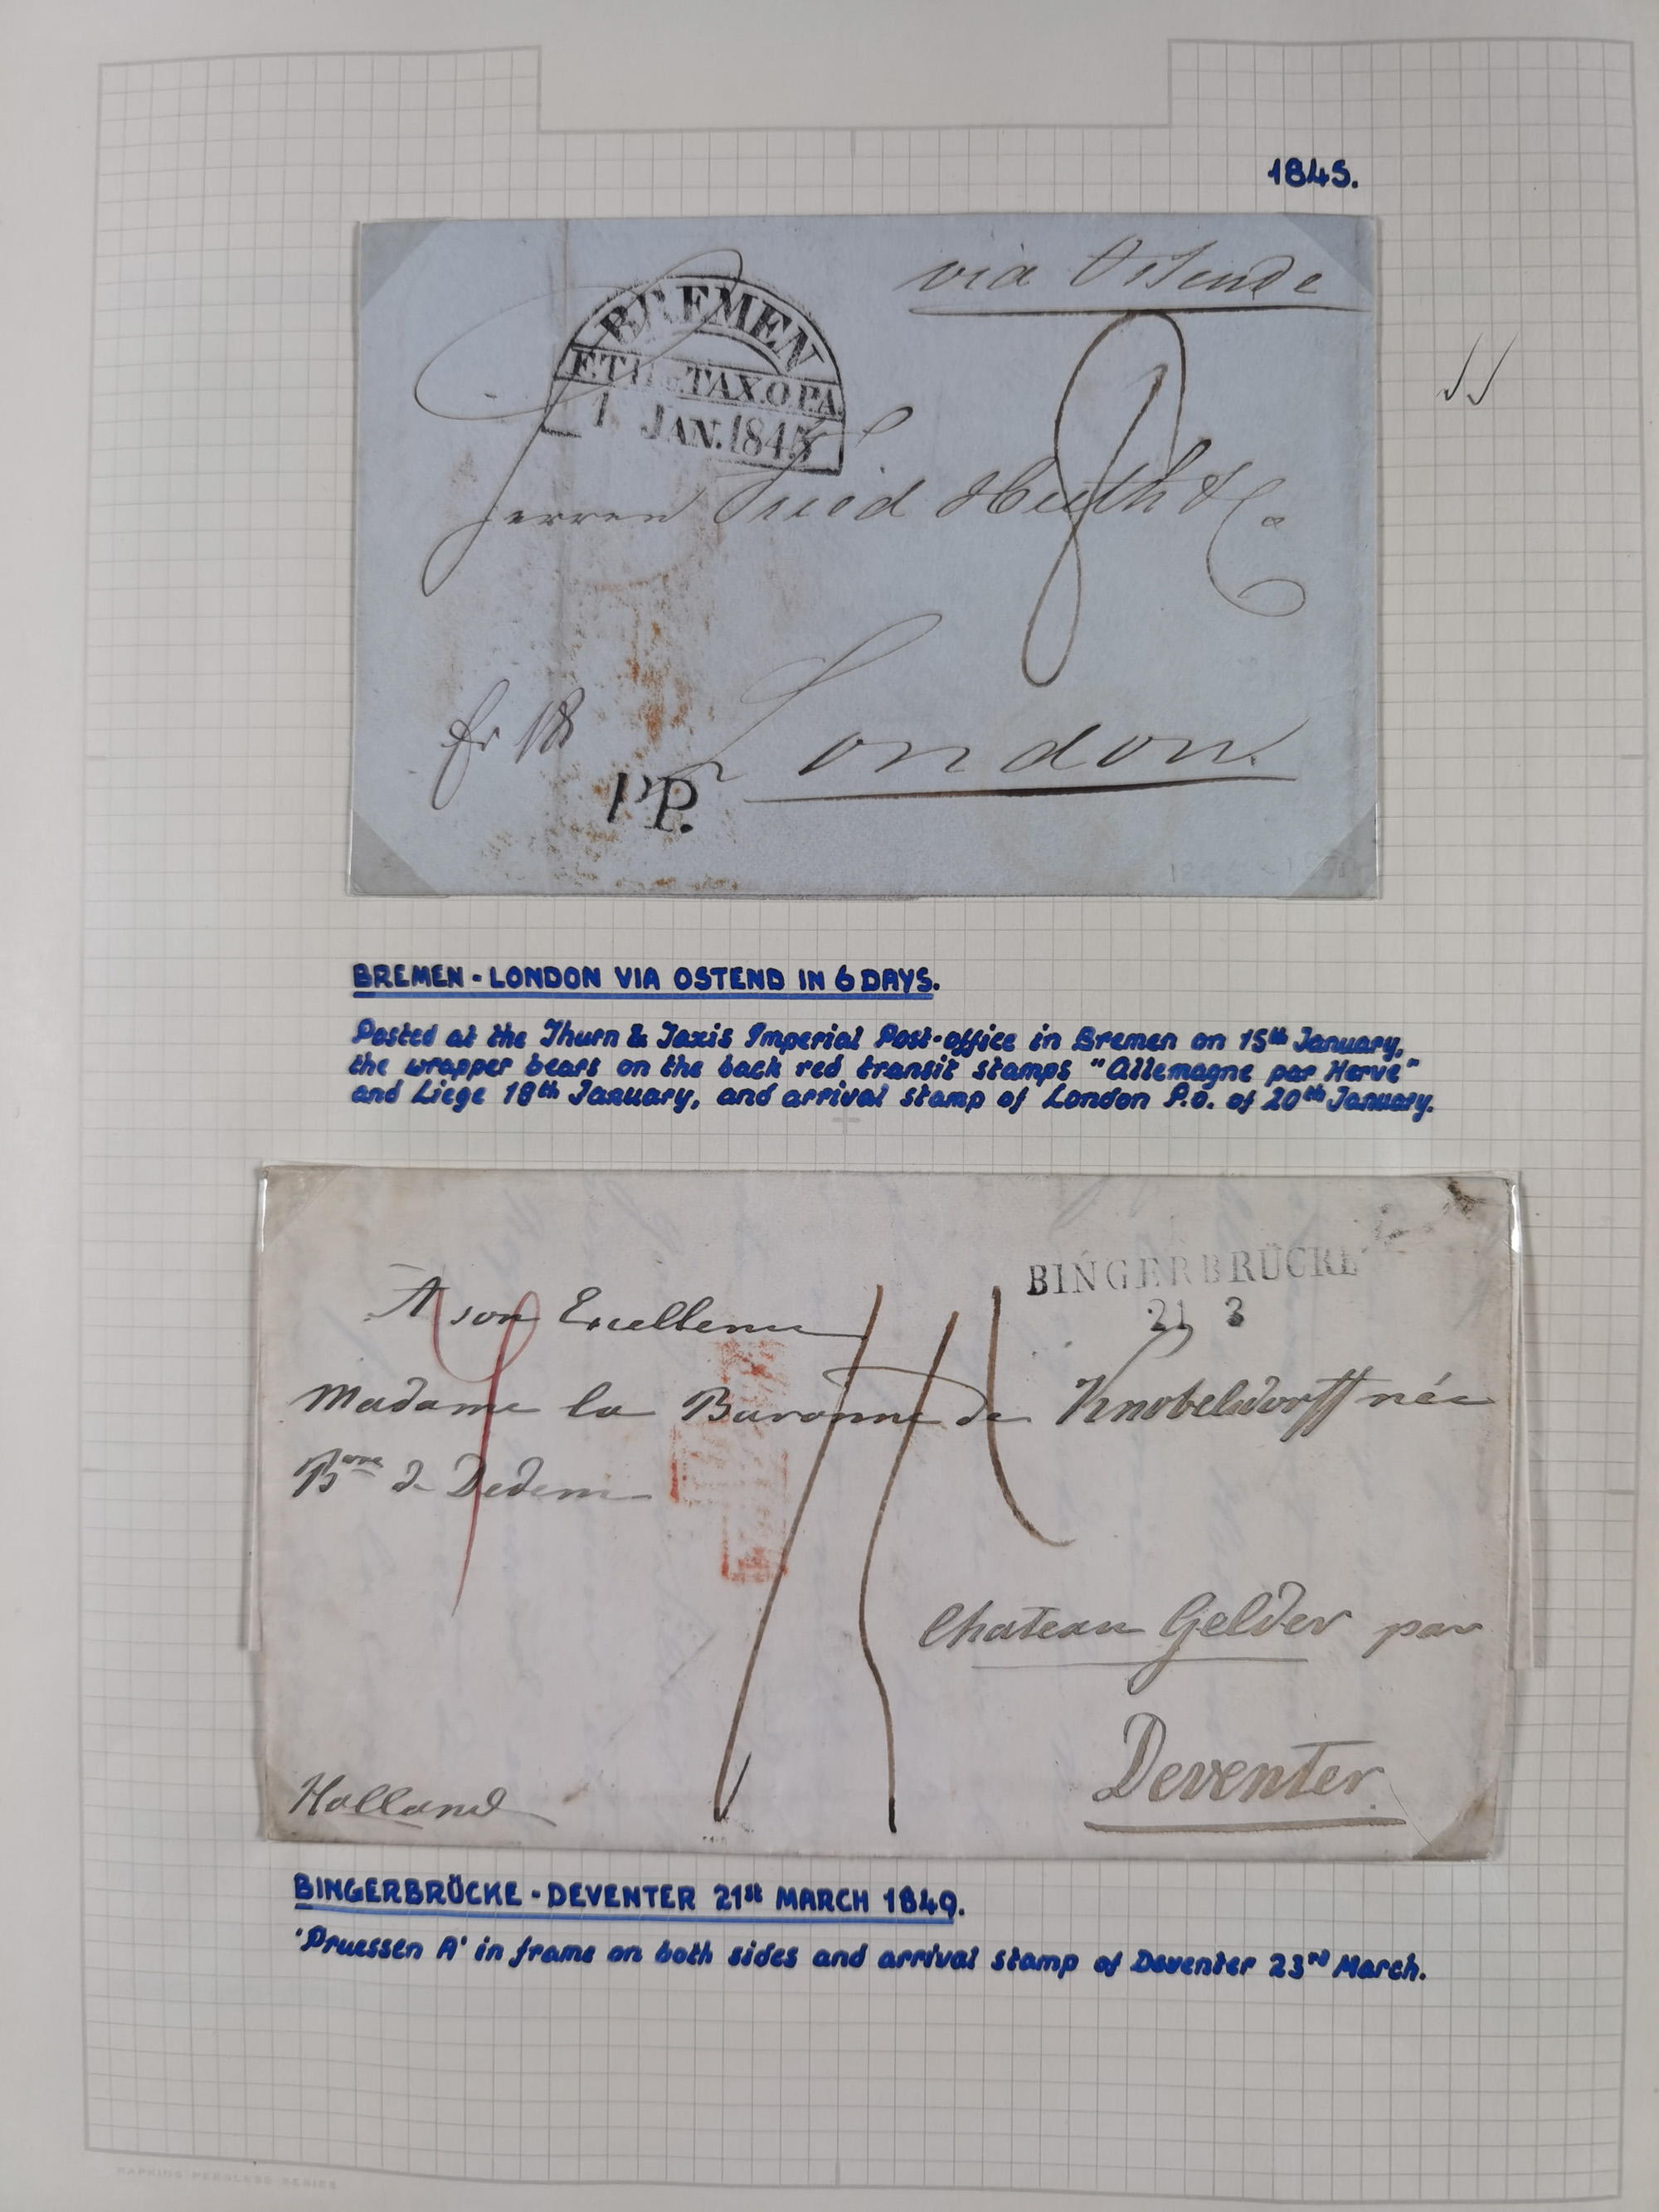 1845.
via Ostende
BREMEN
TAX.O P.A.
1 JAN. 1845
Herren Fried Huth & Co
fr 18
London
P.P.
BREMEN - LONDON VIA OSTEND IN 6 DAYS.
Posted at the Thurn & Taxis Imperial Post-office in Bremen on 15th January,
the wrapper bears on the back red transit stamps "Allemagne par Herve"
and Liege 18th January, and arrival stamp of London P.O. of 20th January.
BINGERBRÜCKE
21 3
A son Excellence
Madame la Baronne de Knobelsdorff née
Bonne de Dedem
Chateau Gelder par
Deventer.
Holland
BINGERBRÜCKE - DEVENTER 21st MARCH 1849.
'Pruessen A' in frame on both sides and arrival stamp of Deventer 23rd March.
RAPKINS PEERLESS SERIES